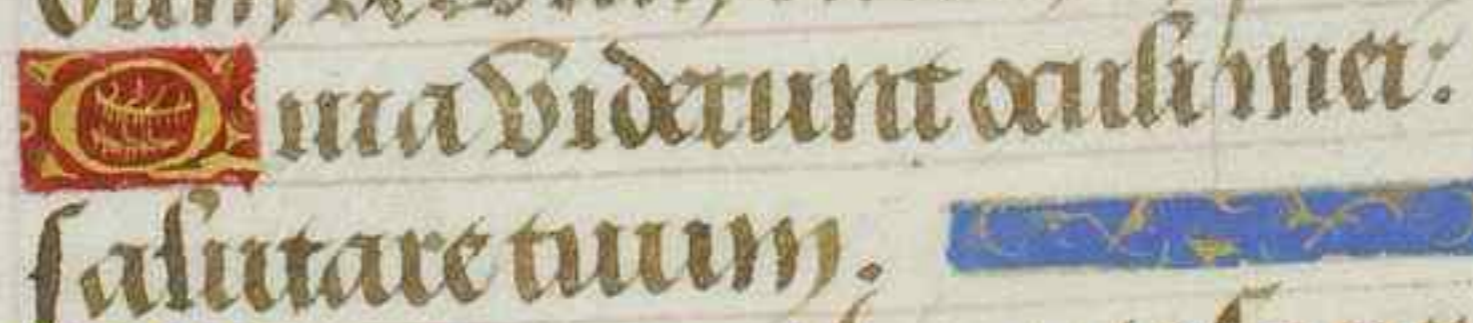 Quia viderunt oculi mei:
salutare tuum.